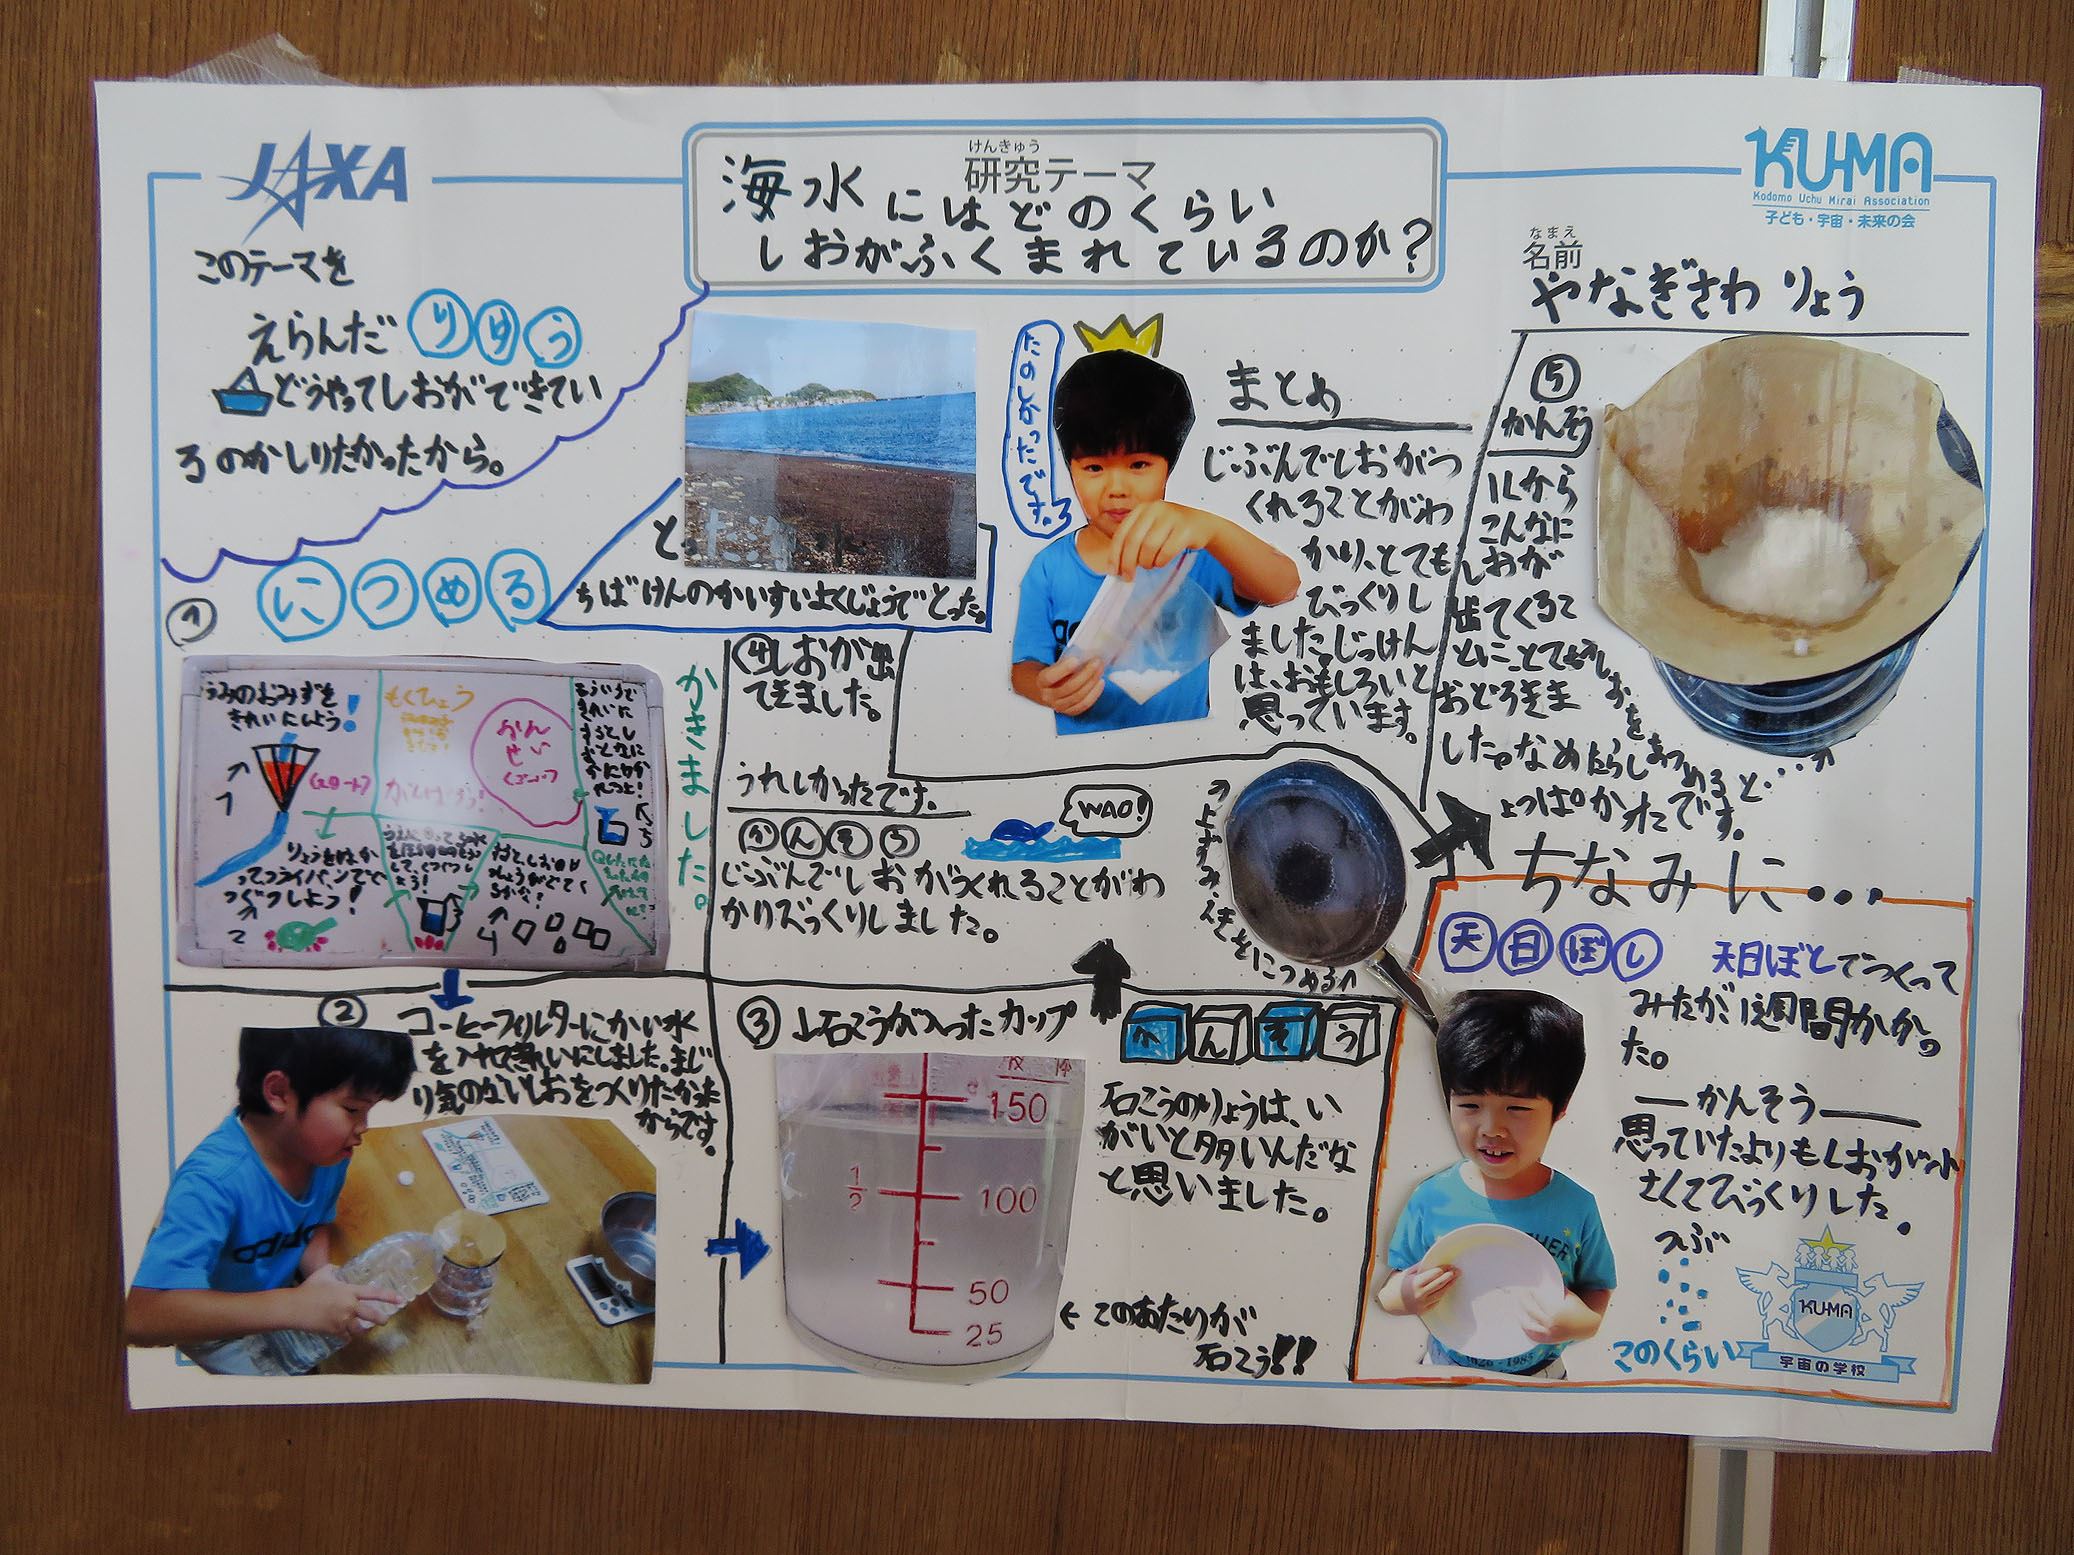 JAXA
けんきゅう
研究テーマ
海水にはどのくらい
しおがふくまれているのか?
KU-MA
Kodomo Uchu Mirai Association
子ども・宇宙・未来の会
なまえ
名前
やなぎさわ りょう
このテーマを
えらんだ りゆう
どうやってしおができてい
るのかしりたかったから。
とった海
ちばけんのかいすいよくじょうでとった。
① につめる
うみのおみずを
きれいにしよう!
もくひょう
かんせい
かきました。
② コーヒーフィルターにかい水
を入れてきれいにしました。まじ
り気のないしおをつくりたかった
からです。
③ ↓石こうが入ったカップ
150
1/2
100
50
25
← このあたりが
石こう!!
かんそう
石こうのりょうは、い
がいと多いんだな
と思いました。
④しおが出
てきました。
うれしかったです。
かんそう
じぶんでしおがつくれることがわ
かりびっくりしました。
WAO!
たのしかったです。
まとめ
じぶんでしおがつ
くれることがわ
かり、とても
びっくりし
ました。じっけん
は、おもしろいと
思っています。
⑤
かんそう
1Lから
こんなに
しおが
出てくるこ
とに
おどろきま
した。なめたらし
ょっぱかったです。
ちなみに・・・
天日ぼし
天日ぼしでつくって
みたが1週間かかっ
た。
かんそう
思っていたよりもしおが小
さくてびっくりした。
つぶ
このくらい
KU-MA
宇宙の学校